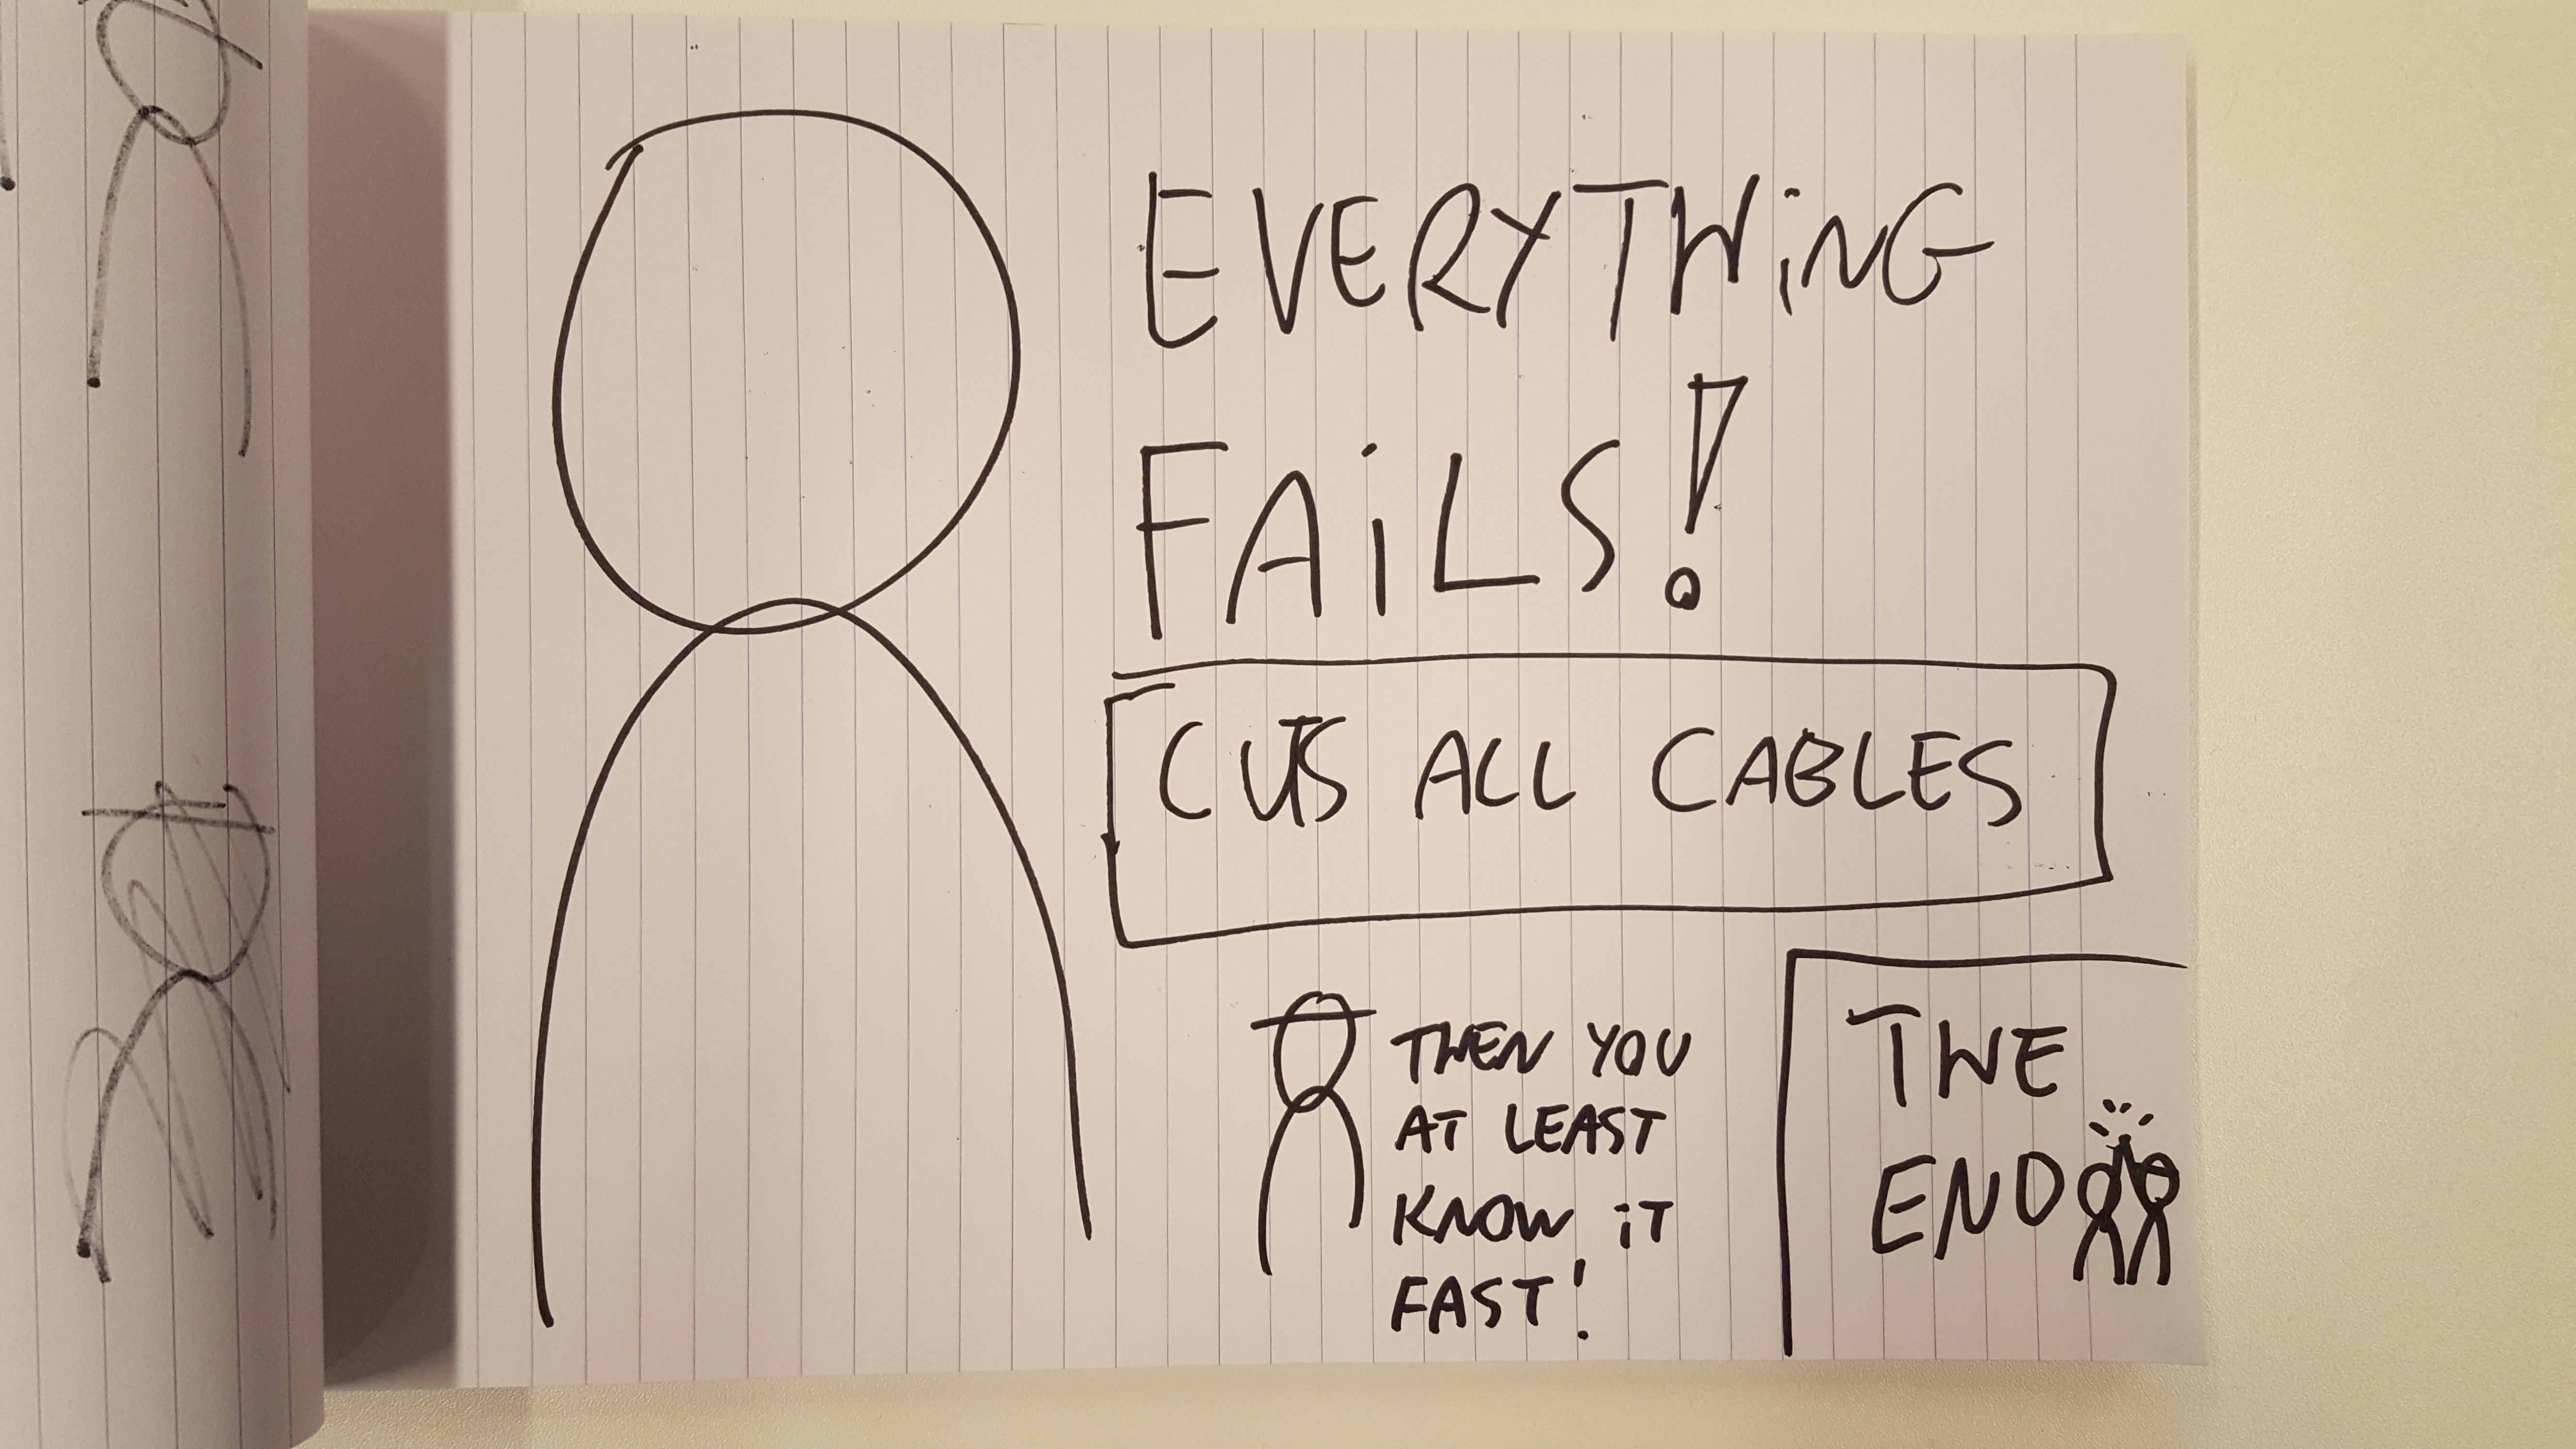 EVERYTHiNG
FAiLS!
CUTS ALL CABLES
THEN YOU
AT LEAST
KNOW iT
FAST!
THE
END